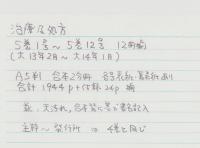 治療及処方
5巻1号～5巻12号 12冊揃
(大13年2月～大14年1月)
A5判 合本2分冊 各号表紙・裏表紙あり
合計1944p+付録26p 欠
蔵、天汚れ、合本背に墨で書名記入
主幹～発行所 ⇒ 4巻と同じ